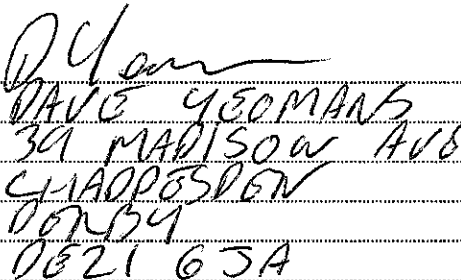 D Yeo
DAVE YEOMANS
39 MADISON AVE
CHADDESDEN
DERBY
DE21 6JA